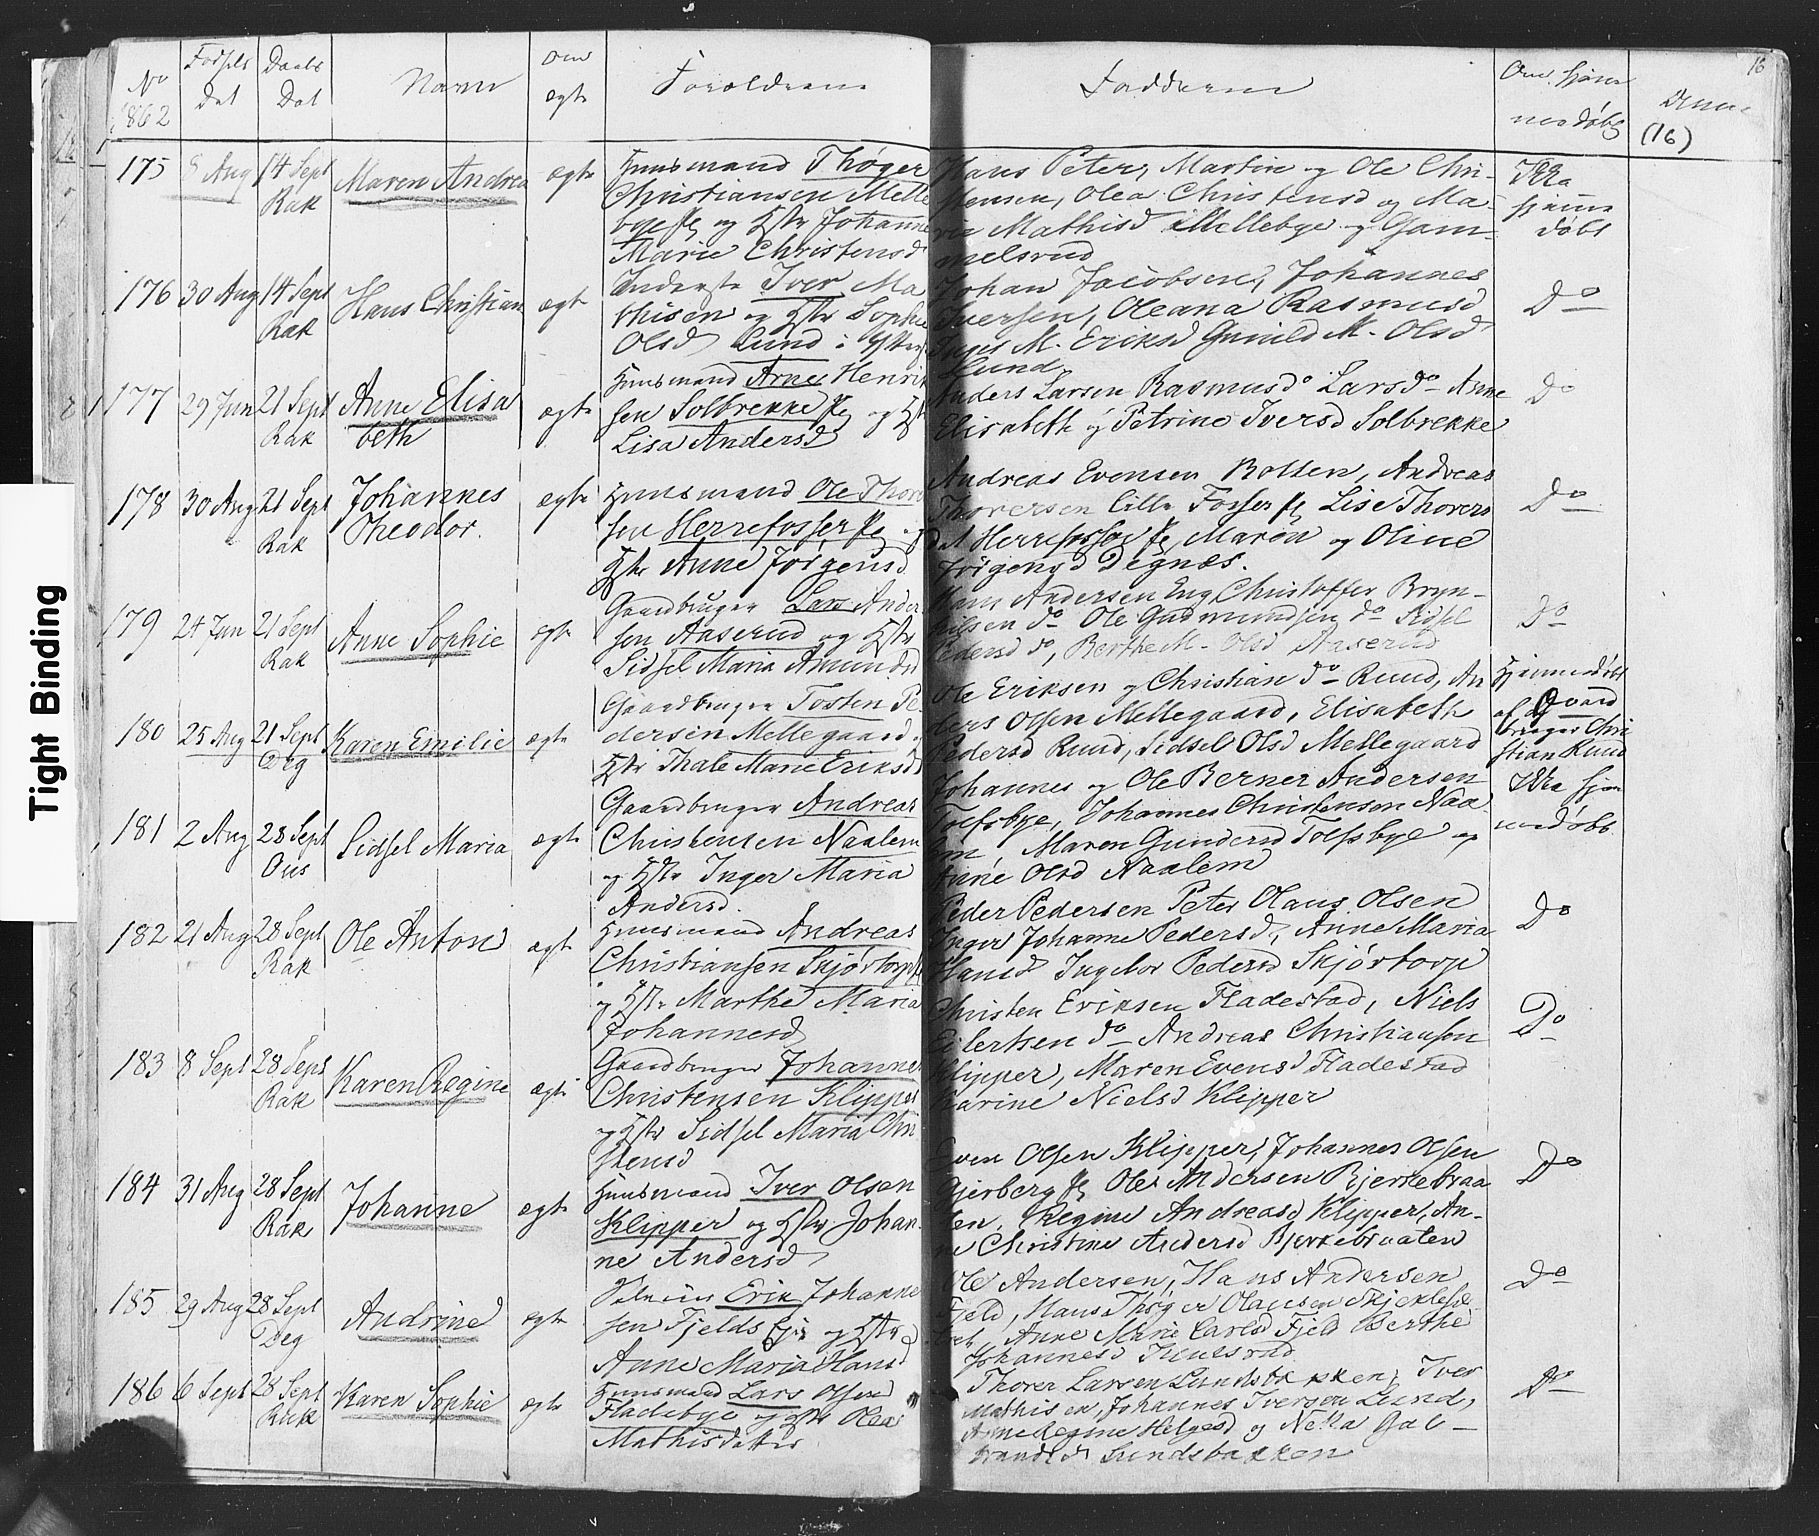 16
No
1862
Fødsels
Dat
Daabs
Dat
Navn
om
ægte
Forældrene
Fadderne
Om hjem
medøbt
(16)
175 8 Aug 14 Sept
Rak
Maren Andrea ægte
Huusmand Thøger
Christiansen Melle
bye pl og Hstr Johanne
Marie Christensd
Hans Peter, Martin og Ole Chri-
stensen, Olea Christensd og Ma-
rie Mathisd Mellebye og Gam-
melsrud
Ikke
hjemme
døbt
176 30 Aug 14 Sept
Rak
Hans Christian ægte
Inderste Iver Ma
thisen og Hstr Sophie
Olsd Lund i
Johan Jacobsen, Johannes
Iversen, Oleana Rasmusd
M. Eriksd Gunild M. Olsd
Lund
Do
177 29 Jun 21 Sept
Rak
Anne Elisa
beth
ægte
Huusmand Arne Henrik
sen Solbrekke pl og Hst
Lisa Andersd
Anders Larsen Rasmusd Larsdo Anne
Elisabeth og Petrine Iversd Solbrekke
Do
178 30 Aug 21 Sept
Rak
Johannes
Theodor.
ægte
Huusmand Ole Thor
sen Herrefosser pl og
Hstr Anne Jørgensd
Andreas Evensen Botten, Andreas
Thoversen Lille Fosser pl Lise Thovers
dat Herrefosser pl Maren og Oline
Jørgensd Degnæs.
Do
179 24 Jun 21 Sept
Rak
Anne Sophie ægte
Gaardbruger Lars Ander
sen Aaserud og Hstr
Sidsel Maria Amunds
Hans Andersen Eng Christoffer Bryn-
nilsen do Ole Gudmundsen do Sidsel
Pedersd do, Berthe M. Olsd Aaserud
Do
180 25 Aug 21 Sept
Deg
Karen Emilie ægte
Gaardbruger Tosten Pe
dersen Mellegaard
Hstr Thale Marie Eriksd
Ole Eriksen og Christian do Ruud, An
ders Olsen Mellegaard, Elisabeth
Pedersd Ruud, Sidsel Olsd Mellegaard
Hjemmedøbt
af Gaard
bruger Chri
stian Ruud
181 2 Aug 28 Sept
Ous
Sidsel Maria ægte
Gaardbruger Andreas
Christensen Naalem
og Hstr Inger Maria
Andersd.
Johannes og Ole Berner Andersen
Tolfsbye, Johannes Christensen Naa
lem, Maren Gundersd Tolfsbye og
Anne Olsd Naalem
Ikke hjem
medøbt
182 21 Aug 28 Sept
Rak
Ole Anton ægte
Huusmand Andreas
Christiansen Skjørtorp
og Hstr Marthe Maria
Johannesd
Peder Pedersen Peter Olaus Olsen
Inger Johanne Pedersd, Anne Maria
Hansd Ingebor Pedersd Skjørtorp
Do
183 8 Sept 28 Sept
Rak
Karen Regine ægte
Gaardbruger Johannes
Christensen Klipper
og Hstr Sidsel Maria Chri
stensd
Christen Eriksen Fladestad, Niels
Eilertsen do Andreas Christiansen
Klipper, Maren Evensd Fladestad
Karine Nielsd Klipper
Do
184 31 Aug 28 Sept
Rak
Johanne ægte
Huusmand Iver Olsen
Klipper og Hstr Johan-
ne Andersd
Even Olsen Klipper, Johannes Olsen
Gjerberg pl Ole Andersen Bjerkebraa
ten, Regine Andreasd Klipper, An-
ne Christine Andersd Bjerkebraaten
Do
185 29 Aug 28 Sept
Deg
Andrine ægte
Erik Johanne
sen Fjelds Eje og Hstr
Anne Maria Hansd
Ole Andersen, Hans Andersen
Fjeld, Hans Thøger Olausen
Anne Marie Carlsd Fjeld Berthe
Johannesd
Do
186 6 Sept 28 Sept
Rak
Karen Sophie ægte
Huusmand Lars Olsen
Fladebye og Hstr Olea
Mathisdatter
Thorer Larsen Lundsbakken, Iver
Mathisen, Johannes Iversen Lund,
Anne Regine Helgesd og Gul-
brandsd Lundsbakken
Do
Tight Binding